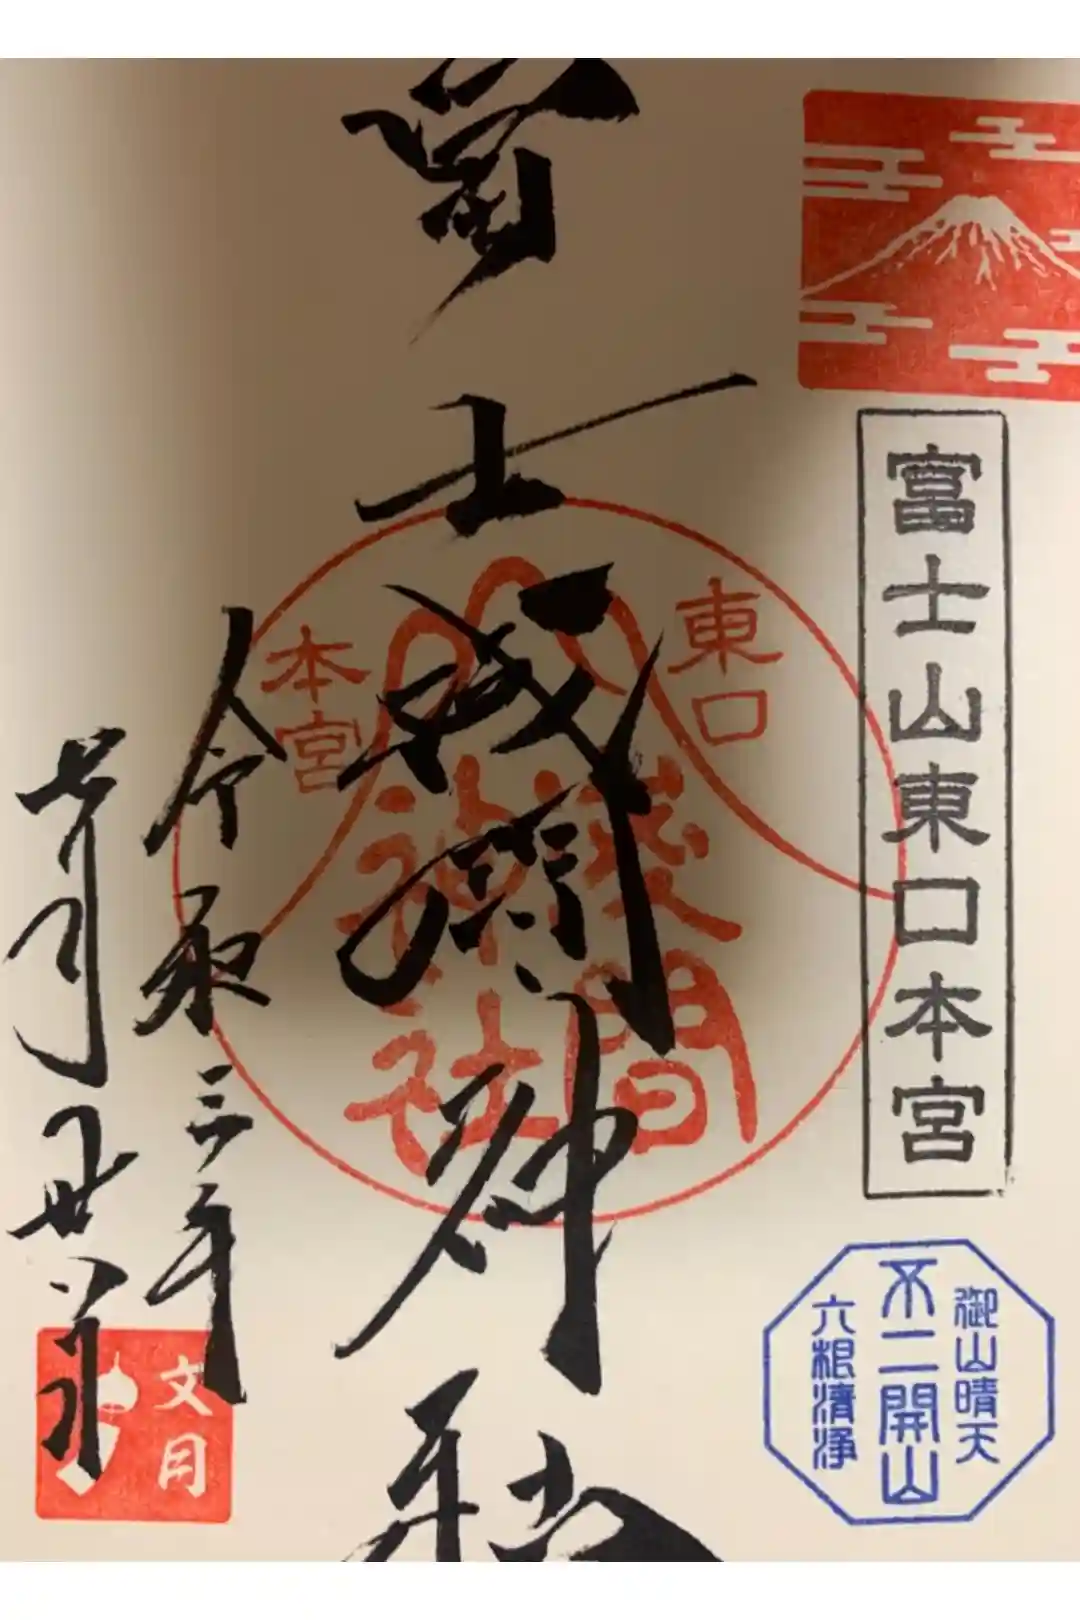 富士山東口本宮
御山晴天
不二開山
六根清浄
冨士浅間神社
東口
本宮
淺間
神社
令和三年
七月廿八日
文月